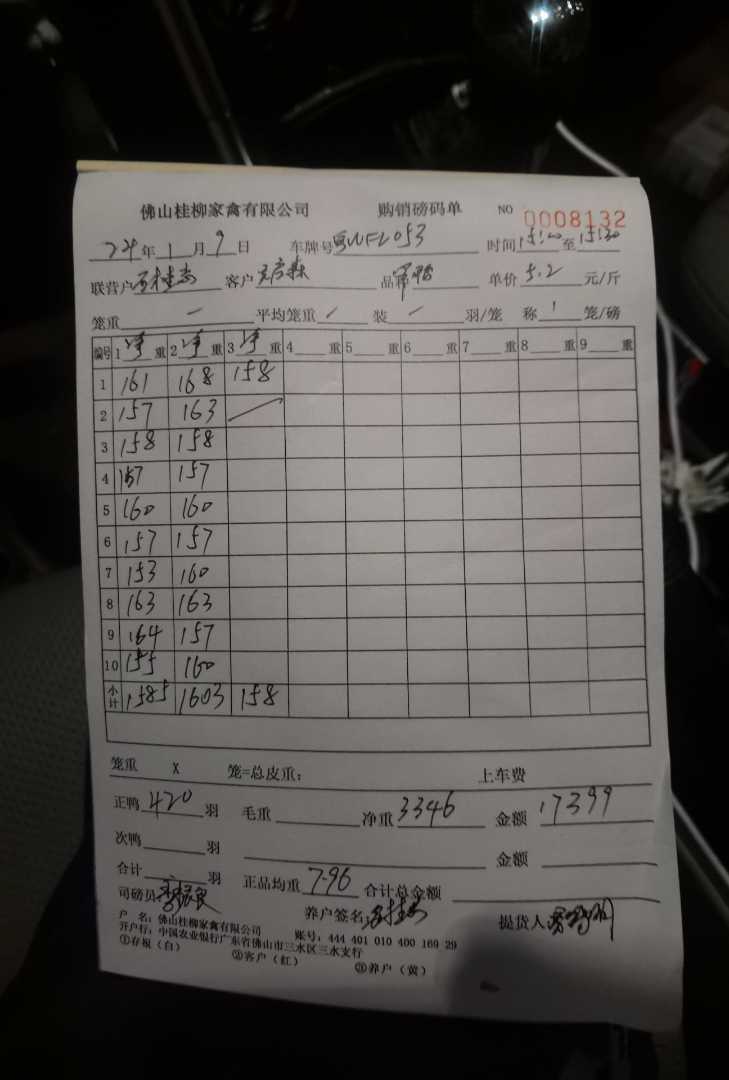 佛山桂柳家禽有限公司 购销磅码单 NO 0008132
24年1月9日 车牌号 WFL053 时间15:00至15:30
联营户 客户 品 单价5.2元/斤
笼重 — 平均笼重 / 装 — 羽/笼 称 1 笼/磅
编号 1净重 2净重 3净重 4 重 5 重 6 重 7 重 8 重 9 重
1 161 168 158
2 157 163
3 158 158
4 157 157
5 160 160
6 157 157
7 153 160
8 163 163
9 164 157
10 155 160
小计 1585 1603 158
笼重 X 笼=总皮重: 上车费
正鸭 420 羽 毛重 净重 3346 金额 17399
次鸭 羽 金额
合计 羽 正品均重 7.96 合计总金额
司磅员 养户签名 提货人
户 名: 佛山桂柳家禽有限公司
开户行: 中国农业银行广东省佛山市三水区三水支行 账号: 444 401 010 400 169 29
①存根(白) ②客户(红) ③养户(黄)